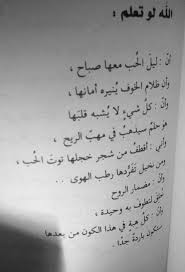 الله لو تعلم :
أنّ : ليلَ الحُب معها صباح ،
وأن ظلام الخوف يُنيره أمانها ،
و أنّ : كلُّ شيء لا يُشبه قلبها
هو حلمٌ سيذهبُ في مهبّ الريح ،
وأنني : أقطفُ من شجر خجلها توتَ الحُب ،
ومن نخيل تفرّدها رطب الهوى ..
وأن : مضمار الروح
خُلق لتطوف به وحيدة ،
وأنّ : كل هبة في هذا الكون من بعدها
ستكون باردةً جدًا .